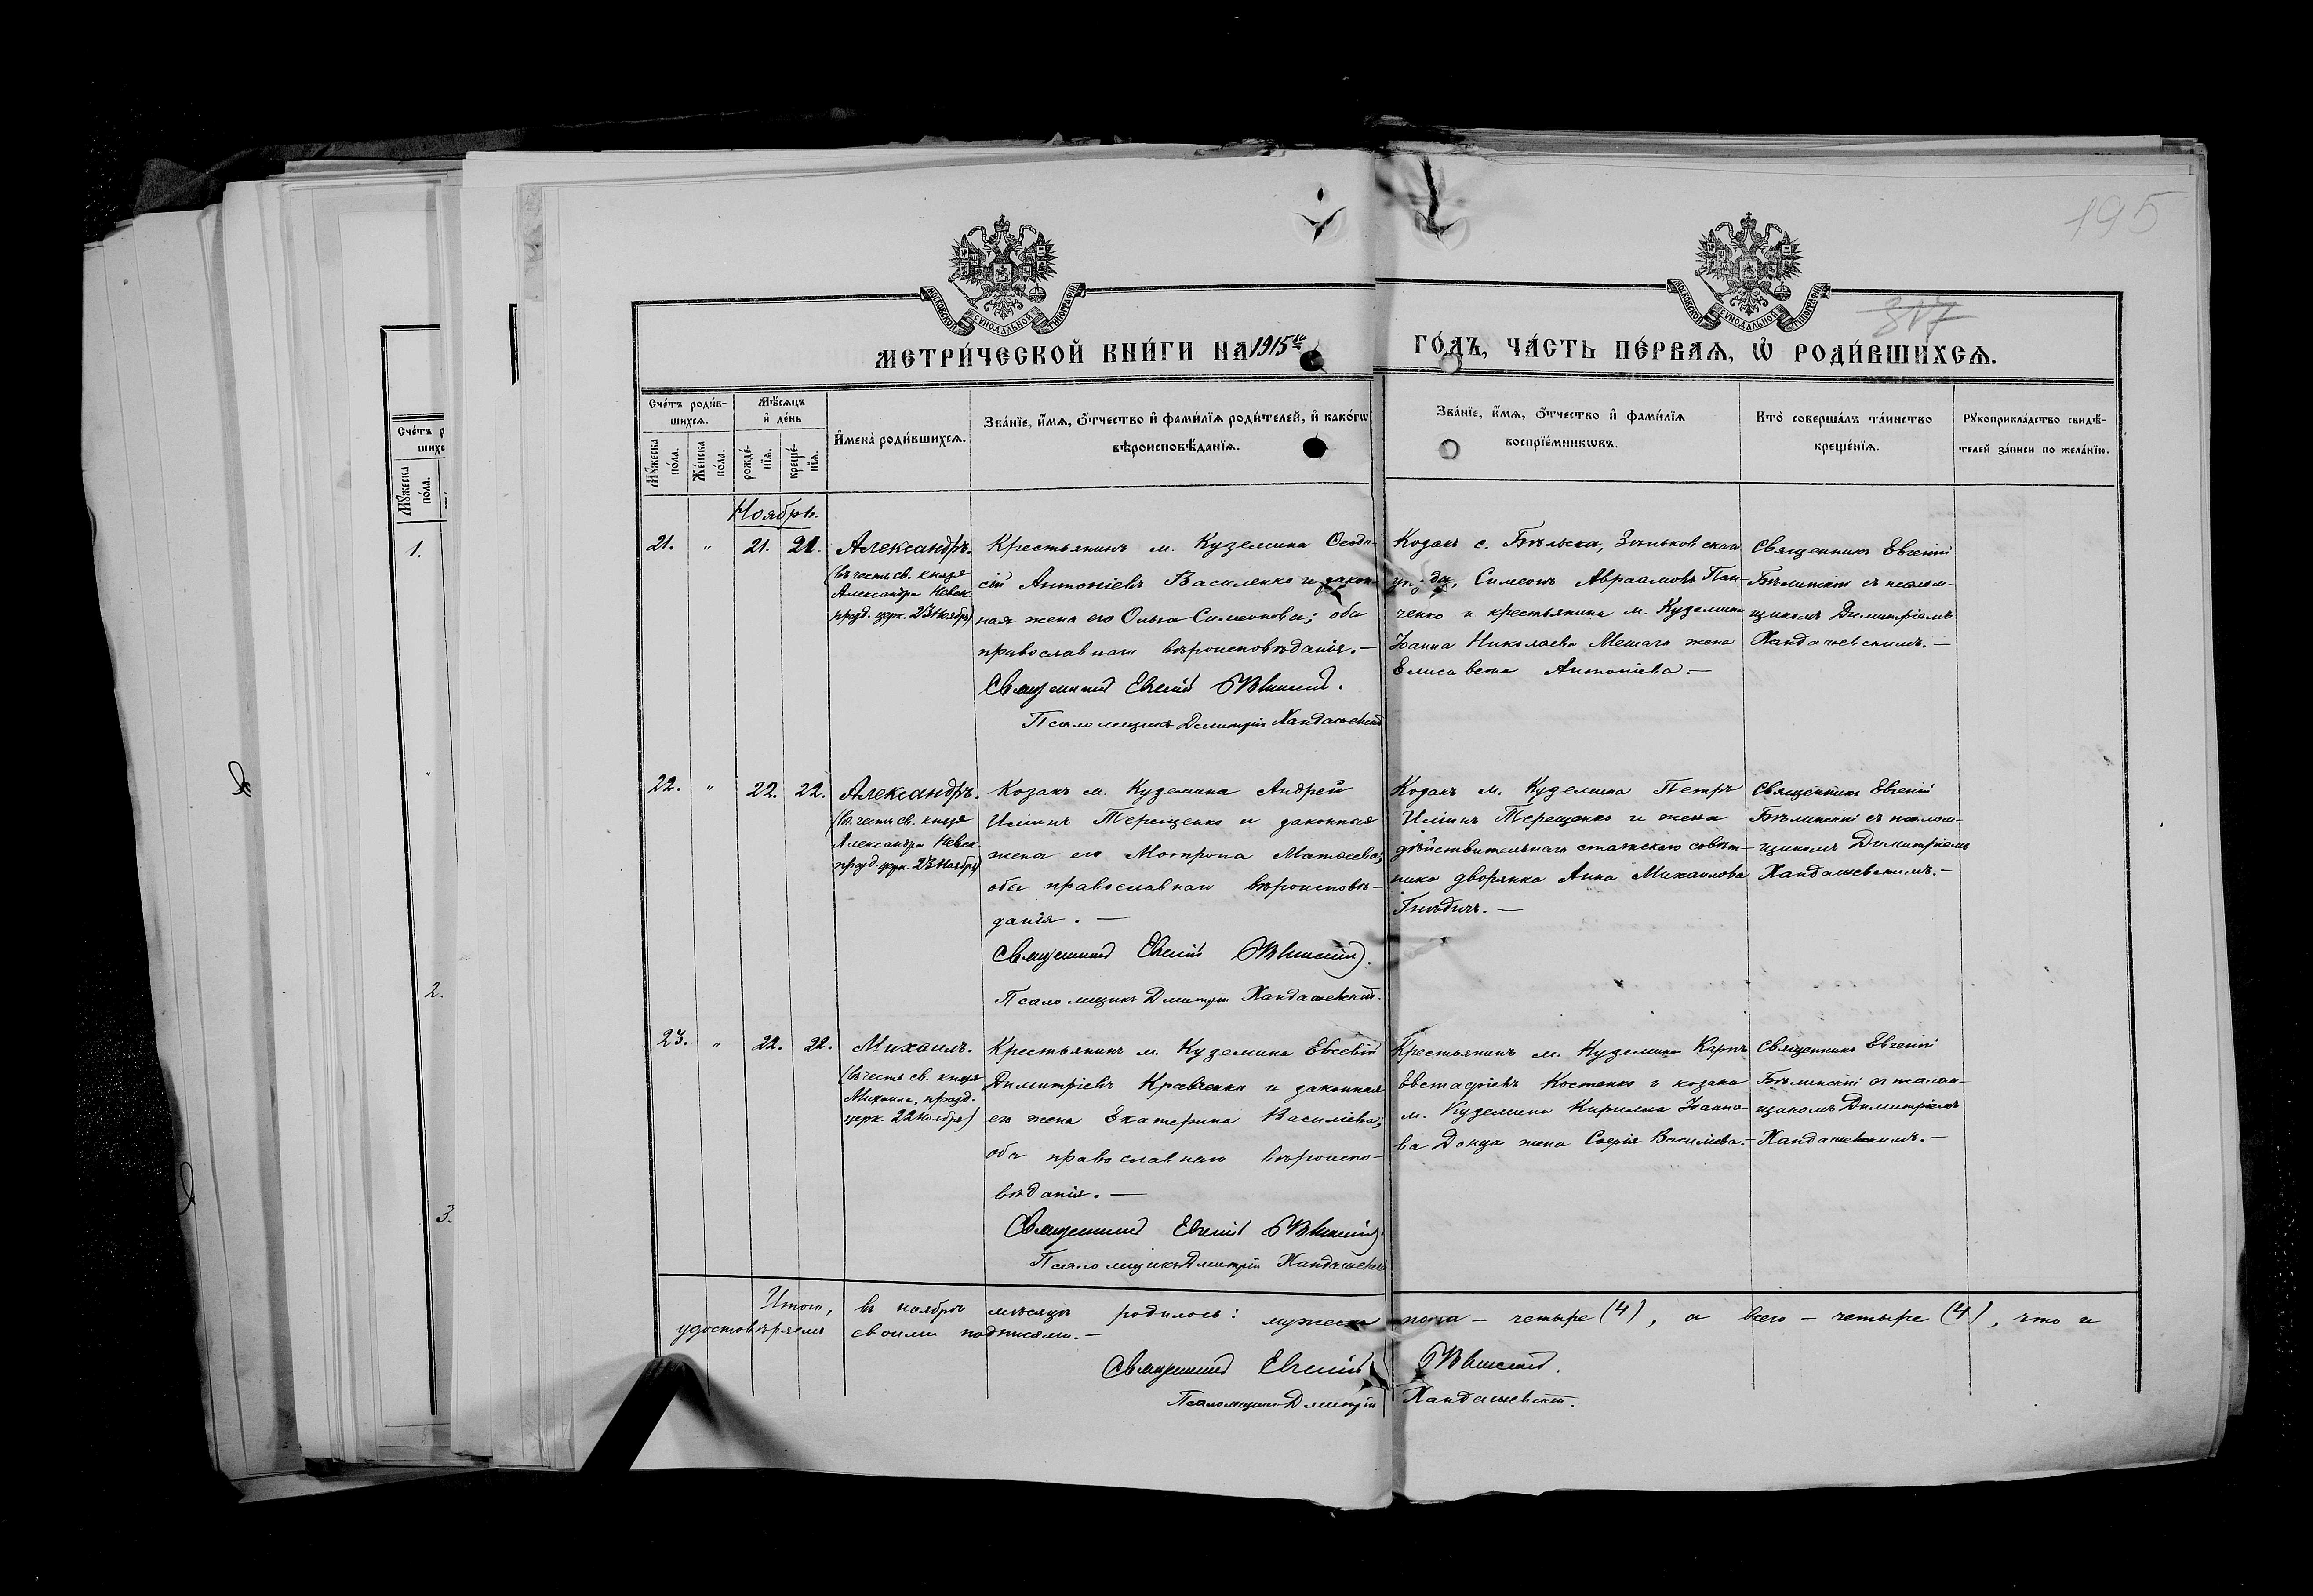 195
317
МОСКОВСКОЙ СѴНОДАЛЬНОЙ ТИПОГРАФІИ
МОСКОВСКОЙ СѴНОДАЛЬНОЙ ТИПОГРАФІИ
МЕТРИ́ЧЕСКОЙ КНИ́ГИ НА 1915й
ГО́ДЪ, ЧА́СТЬ ПЕ́РВАѦ, Ѽ РОДИ́ВШИХСѦ.
Сче́тъ роди́в-
шихсѧ.
Мꙋ́жеска по́ла.
Же́нска по́ла.
Мѣ́сѧцъ
и҆ де́нь
рожде́-
нїѧ.
креще́-
нїѧ.
И҆мена̀ роди́вшихсѧ.
Зва́нїе, и҆́мѧ, ѻ҆́тчество и҆ фами́лїѧ роди́телей, и҆ како́гѡ
вѣроисповѣ́данїѧ.
Зва́нїе, и҆́мѧ, ѻ҆́тчество и҆ фами́лїѧ
воспрїе́мникѡвъ.
Кто̀ соверша́лъ та́инство
креще́нїѧ.
Рꙋкоприкла́дство свидѣ́-
телей за́писи по жела́нїю.
Ноябрь.
21. " 21. 21.
Александръ.
(въ честь св. князя
Александра Невск.
празд. церк. 23 Ноября)
Крестьянинъ м. Куземина Ѳеодо-
сій Антоніевъ Василенко и закон-
ная жена его Ольга Симеонова; оба
православнаго вѣроисповѣданія.—
Священникъ Евгеній
Псаломщикъ Димитрій Хандажевскій
Козакъ с. Бѣльска, Зѣньковскаго
уѣзда, Симеонъ Авраамовъ Пан-
ченко и крестьянина м. Куземина
Іоанна Николаева Мешаго жена
Елисавета Антоніева.—
Священникъ Евгеній
Бѣлинскій съ псалом-
щикомъ Димитріемъ
Хандажевскимъ.—
22. " 22. 22.
Александръ.
(въ честь св. князя
Александра Невск.
празд. церк. 23 Ноября)
Козакъ м. Куземина Андрей
Иліинъ Терещенко и законная
жена его Мотрона Матѳеева;
оба православнаго вѣроисповѣ-
данія.—
Священникъ Евгеній
Псаломщикъ Димитрій Хандажевскій.
Козакъ м. Куземина Петръ
Иліинъ Терещенко и жена
дѣйствительнаго статскаго совѣт-
ника дворянка Анна Михаилова
Гнѣдичъ.—
Священникъ Евгеній
Бѣлинскій съ псалом-
щикомъ Димитріемъ
Хандажевскимъ.—
23. " 22. 22.
Михаилъ.
(въ честь св. князя
Михаила, празд.
церк. 22 Ноября)
Крестьянинъ м. Куземина Евсевій
Димитріевъ Кравченко и законная
его жена Екатерина Василіева;
оба православнаго вѣроиспо-
вѣданія.—
Священникъ Евгеній
Псаломщикъ Димитрій Хандажевскій
Крестьянинъ м. Куземина Карпъ
Евстафіевъ Костенко и козака
м. Куземина Кирилла Іоанно-
ва Донца жена Софія Василіева.—
Священникъ Евгеній
Бѣлинскій съ псалом-
щикомъ Димитріемъ
Хандажевскимъ.—
Итого, въ ноябрѣ мѣсяцѣ родилось: мужеска пола — четыре (4), а всего — четыре (4), что и
удостовѣряемъ своими подписями.—
Священникъ Евгеній
Псаломщикъ Димитрій Хандажевскій.
Сче́тъ р
шихс
Мꙋ́жеска
по́ла.
1.
2.
3.